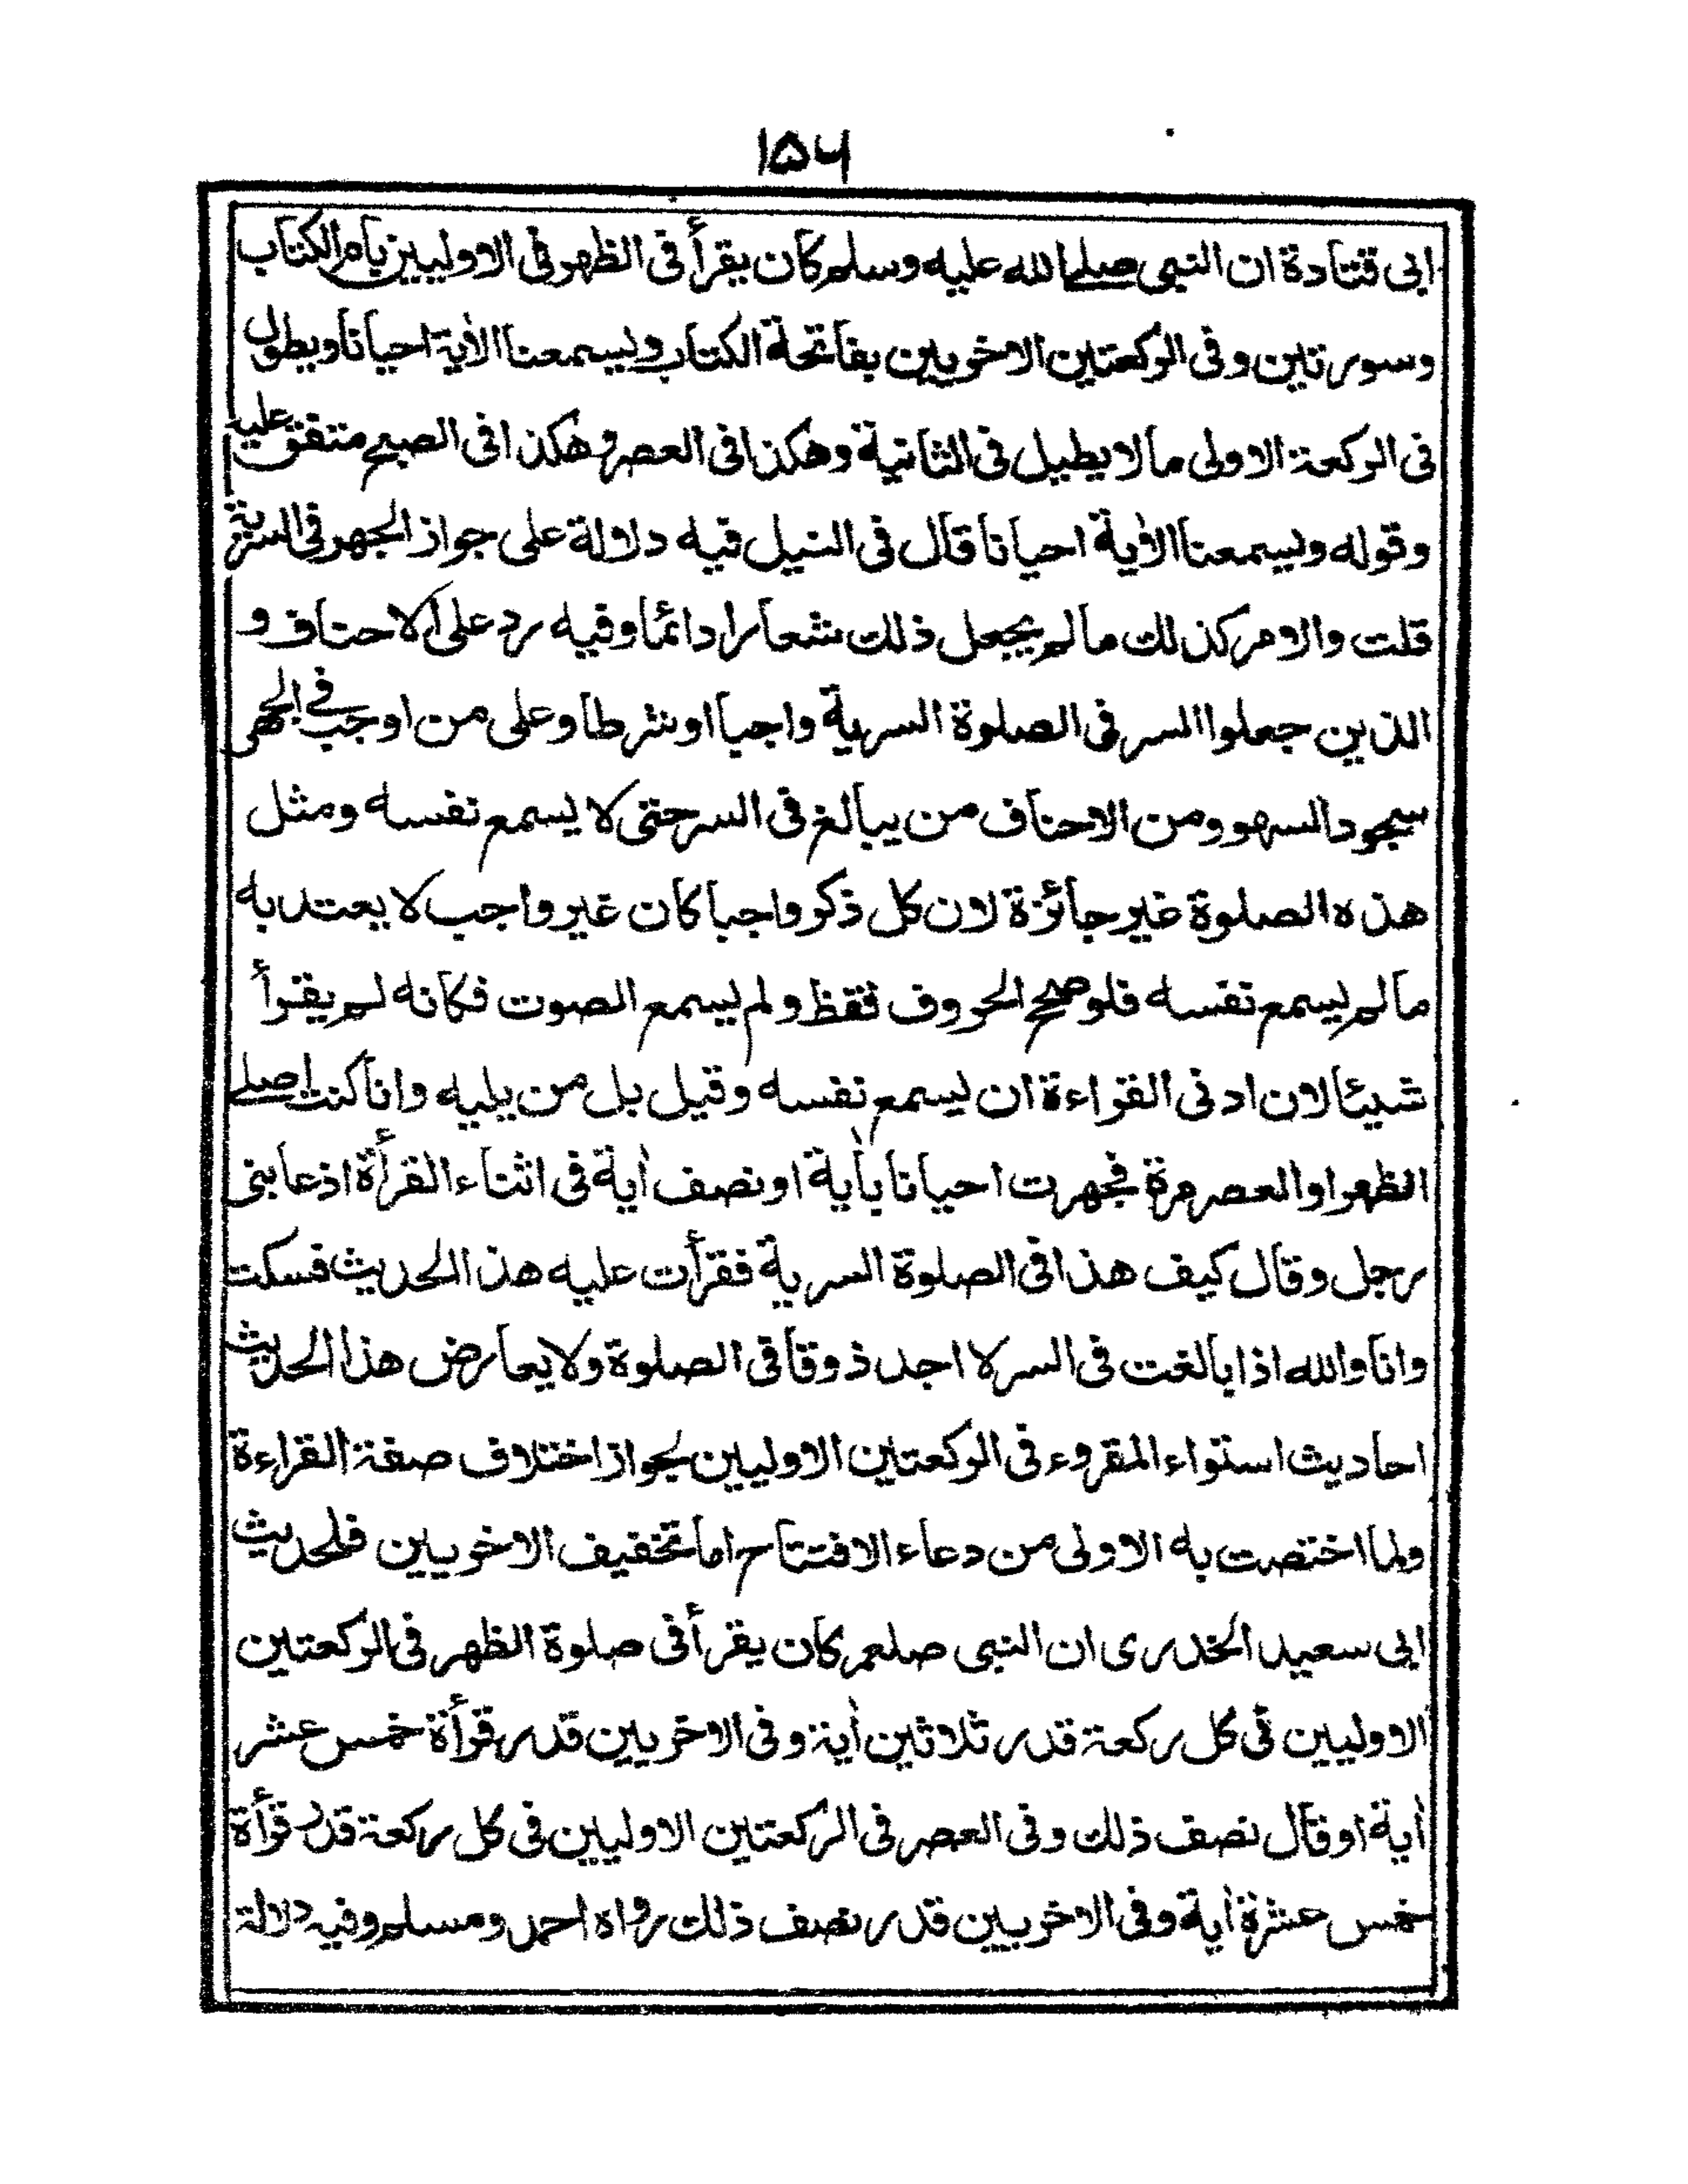 ۱۵۶
ابی قتادة ان النبی صلے الله علیه وسلم کان یقرأ فی الظهر فی الاولیین بام الکتاب
وسورتین وفی الرکعتین الاخریین بفاتحة الکتاب ویسمعنا الأیة احیانا ویطول
فی الرکعة الاولی مالا یطیل فی الثانیة وهکذا فی العصر وهکذا فی الصبح متفق علیه
وقوله ویسمعنا الأیة احیانا قال فی النیل فیه دلالة علی جواز الجهر فی السریة
قلت والامر کذلك مالم یجعل ذلك شعارا دائما وفیه رد علی الاحناف و
الذین جعلوا السر فی الصلوة السریة واجبا او شرطا وعلی من اوجب فی الجهر
سجود السهو ومن الاحناف من یبالغ فی السر حتی لا یسمع نفسه ومثل
هذه الصلوة غیر جائزة لان کل ذکر واجبا کان غیر واجب لا یعتد به
مالم یسمع نفسه فلو صحح الحروف فقط ولم یسمع الصوت فکانه لم یقرأ
شیئا لان ادنی القراءة ان یسمع نفسه وقیل بل من یلیه وانا کنت اصلے
الظهر او العصر مرة فجهرت احیانا بأیة او نصف أیة فی اثناء القرأة اذ عابنی
رجل وقال کیف هذا فی الصلوة السریة فقرأت علیه هذا الحدیث فسکت
وانا والله اذا بالغت فی السر لا اجد ذوقا فی الصلوة ولا یعارض هذا الحدیث
احادیث استواء المقروء فی الرکعتین الاولیین لجواز اختلاف صفة القراءة
ولما اختصت به الاولی من دعاء الافتتاح اما تخفیف الاخریین فلحدیث
ابی سعید الخدری ان النبی صلعم کان یقرأ فی صلوة الظهر فی الرکعتین
الاولیین فی کل رکعة قدر ثلاثین أیة وفی الاخریین قدر قرأة خمس عشر
أیة او قال نصف ذلك وفی العصر فی الرکعتین الاولیین فی کل رکعة قدر قرأة
خمس عشرة أیة وفی الاخریین قدر نصف ذلك رواه احمد ومسلم وفیه دلالة